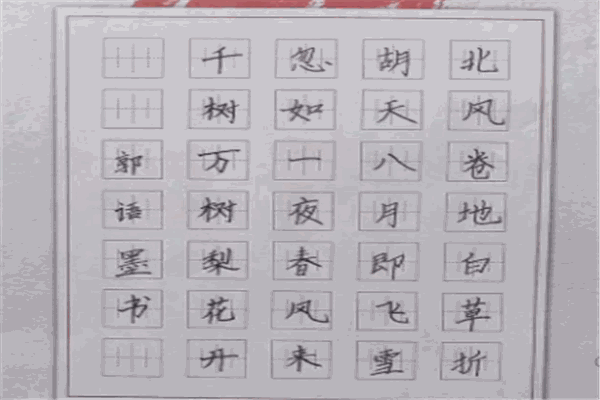 北风卷地白草折
胡天八月即飞雪
忽如一夜春风来
千树万树梨花开
郭语墨书